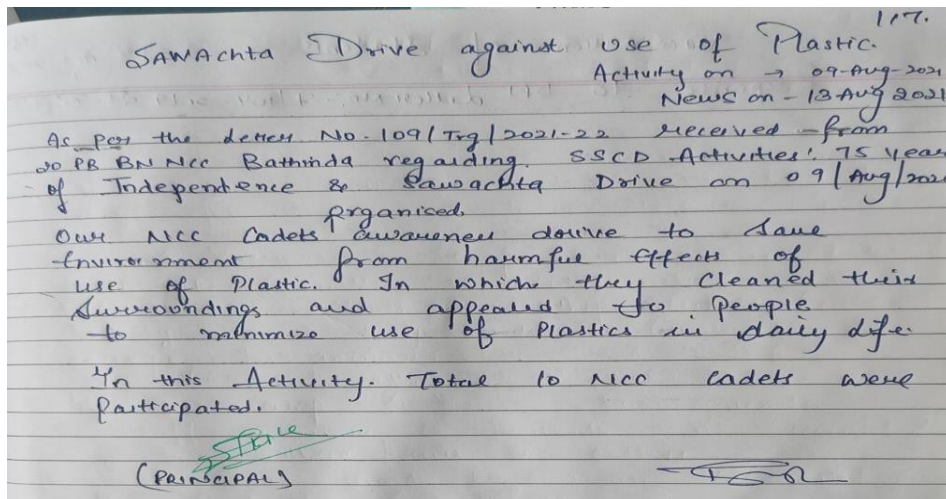 117.
SAWAchta Drive against use of Plastic.
Activity on → 09-Aug-2021
News on - 13 Aug 2021
As per the letter No. 109/Trg/2021-22 received from
20 PB BN NCC Bathinda regarding. SSCD Activities'. 75 year
of Independence & Sawachta Drive on 09/Aug/2021
organised.
Our NCC Cadets awareness drive to Save
Environment from harmful effects of
use of Plastic. In which they cleaned their
Surroundings and appealed to People
to minimize use of Plastics in daily life.
In this Activity. Total 10 NCC cadets were
Participated.
(PRINCIPAL)